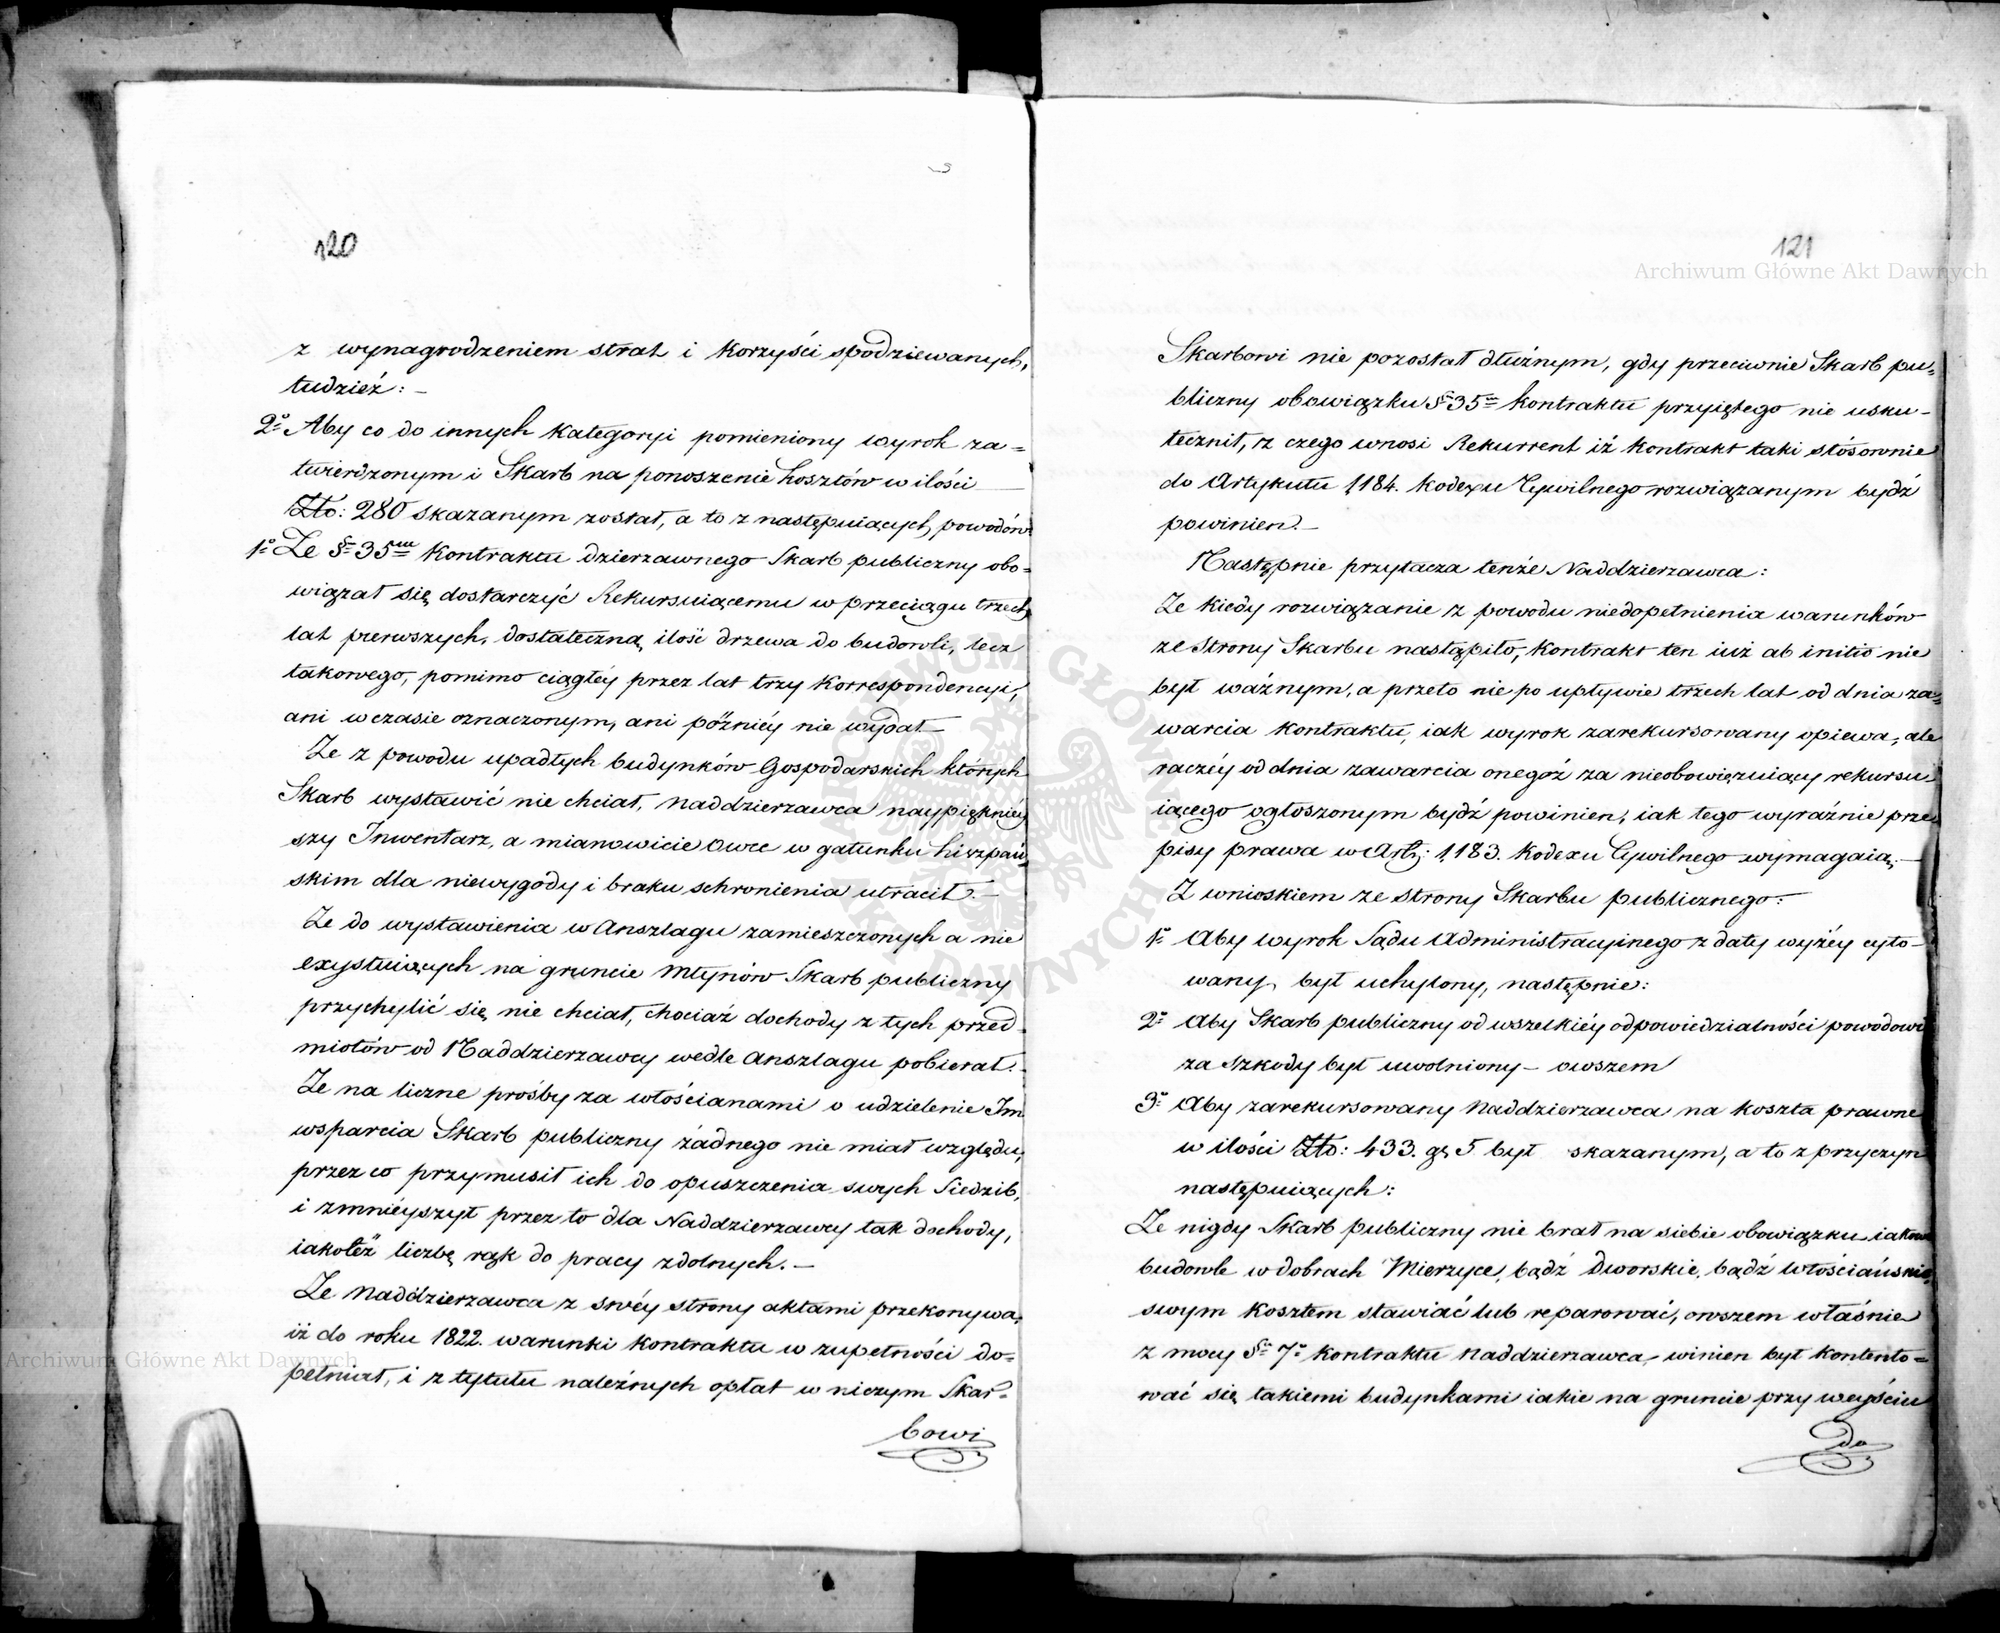 120
z wynagrodzeniem strat i korzyści spodziewanych,
tudzież: —
2º Aby co do innych kategoryi pomieniony wyrok za=
twierdzonym i Skarb na ponoszenie kosztów w ilości
Złp: 280 skazanym został, a to z następuiących powodów
1º Ze §º 35ym Kontraktu dzierzawnego Skarb publiczny obo=
wiązał się dostarczyć Rekursuiącemu w przeciągu trzech
lat pierwszych, dostateczną ilość drzewa do budowli, lecz
takowego, pomimo ciągłéy przez lat trzy Korrespondencyi,
ani w czasie oznaczonym, ani późniéy nie wydał —
Ze z powodu upadłych budynków Gospodarskich których
Skarb wystawić nie chciał, Naddzierzawca naypiękniéy
szy Inwentarz, a mianowicie owce w gatunku hiszpań
skim dla niewygody i braku schronienia utracił. —
Ze do wystawienia w Anszlagu zamieszczonych a nie
exystuiących na gruncie młynów Skarb publiczny
przychylić się nie chciał, chociaż dochody z tych przed=
miotów od Naddzierzawcy wedle Anszlagu pobierał. —
Ze na liczne prośby za włościanami o udzielenie Im
wsparcia Skarb publiczny żadnego nie miał względu,
przez co przymusił ich do opuszczenia swych Siedzib,
i zmniéyszył przez to dla Naddzierzawcy tak dochody,
iakoteż liczbę rąk do pracy zdolnych. —
Ze Naddzierzawca z swéy strony aktami przekonywa,
iż do roku 1822. warunki Kontraktu w zupełności do=
pełniał, i z tytułu należnych opłat w niczym Skar=
bowi
121
Archiwum Główne Akt Dawnych
Skarbowi nie pozostał dłużnym, gdy przeciwnie Skarb pu=
bliczny obowiązku §º 35m Kontraktu przyiętego nie usku-
tecznił, z czego wnosi Rekurrent iż Kontrakt taki stósownie
do Artykułu 1184. Kodexu Cywilnego rozwiązanym bydź
powinien. —
Następnie przytacza tenże Naddzierzawca:
Ze kiedy rozwiązanie z powodu niedopełnienia warunków
ze strony Skarbu nastąpiło, Kontrakt ten iuż ab initio nie
był ważnym, a przeto nie po upływie trzech lat od dnia za=
warcia Kontraktu, iak wyrok zarekursowany opiewa, ale
raczéy od dnia zawarcia onegoż za nieobowięzuiący rekursu
iącego ogłoszonym bydź powinien, iak tego wyraźnie prze
pisy prawa w Art: 1183. Kodexu Cywilnego wymagaią. —
Z wnioskiem ze strony Skarbu publicznego:
1º Aby wyrok Sądu Administracyinego z daty wyżéy cyto-
wany, był uchylony, następnie:
2º Aby Skarb publiczny od wszelkiéy odpowiedzialności powodowi
za szkody był uwolniony — owszem
3º Aby zarekursowany Naddzierzawca na koszta prawne
w ilości Złp: 433. gr 5 był skazanym, a to z przyczyn
następuiących:
Ze nigdy Skarb publiczny nie brał na siebie obowiązku iakowe
budowle w dobrach Mierzyce, bądź dworskie, bądź włościańskie,
swym kosztem stawiać lub reparować, owszem właśnie
z mocy §º 7º Kontraktu Naddzierzawca winien był kontento=
wać się takiemi budynkami iakie na gruncie przy weyściu
do
ARCHIWUM GŁÓWNE AKT DAWNYCH
Archiwum Główne Akt Dawnych